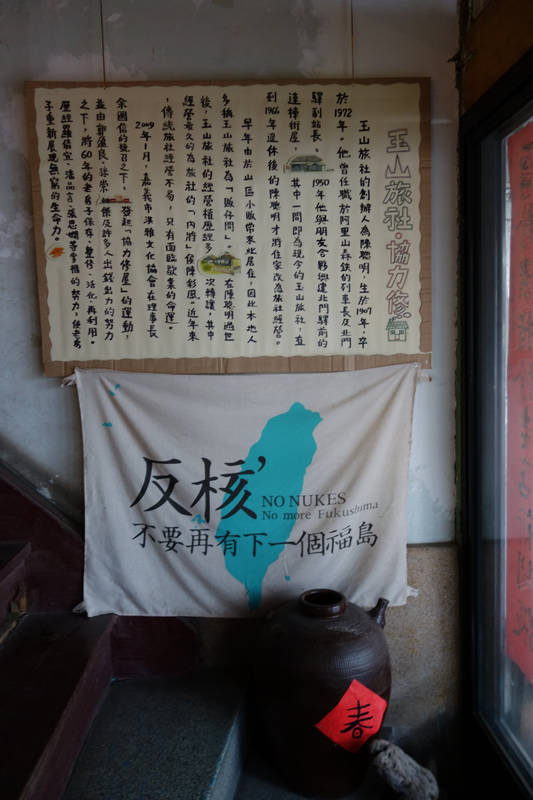 玉山旅社·協力修
玉山旅社的創辦人為陳聰明,生於1907年,卒
於1972年。他曾任職於阿里山森鉄的列車長及北門
驛副站長。1950年他與朋友合夥興建北門驛前的
連棟街屋,其中一間即為現今的玉山旅社,直
到1966年退休後的陳聰明才將住家改為旅社經營。
早年由於山區小販常來此居住,因此本地人
多稱玉山旅社為「販仔間」。在陳聰明過世
後,玉山旅社的經營權歷經多次轉讓,其中
經營最久的為旅社的「內將」侯陳彩鳳。近年來
,傳統旅社經營不易,只有面臨歇業的命運。
2009年1月,嘉義市洪雅文化協會在理事長
余國信的號召之下,發起「協力修屋」的運動,
並由鄭盈良、孫崇傑及許多人出錢出力的努力
之下,將60年的老房子保存、整修、活化、再利用。
歷經羅倩宜、潘品言、張思嫺等掌櫃的努力,使老房
子重新展現無窮的生命力。
反核'
NO NUKES
No more Fukushima
不要再有下一個福島
春